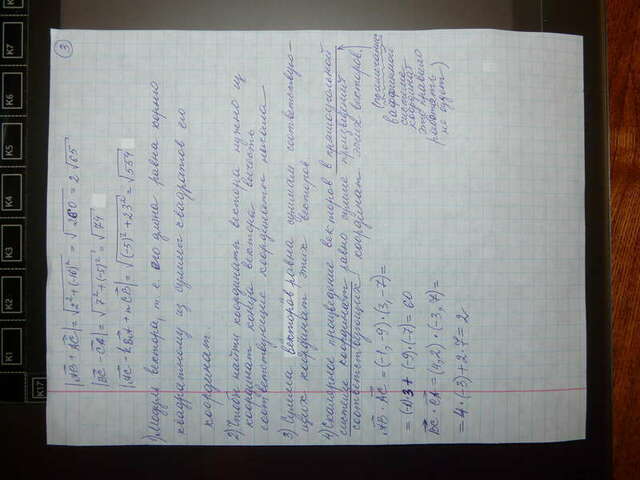 ③
|AB + AC| = √(2² + (-16)²) = √260 = 2√65
|BC - CA| = √(7² + (-5)²) = √74
|AC - kBA + mCB| = √((-5)² + 23²) = √554
1) Модуль вектора, т.е. его длина равна корню
квадратному из суммы квадратов его
координат.
2) Чтобы найти координаты вектора нужно из
координат конца вектора вычесть
соответствующие координаты начала
3) Сумма векторов равна суммам соответствую-
щих координат этих векторов
4) Скалярное произведение векторов в прямоугольной
системе координат равно сумме произведений
соответствующих координат этих векторов.
(примечание
системе
координат
это правило
работать
не будет)
AB · AC = (-1, -9) · (3, -7) =
= (-1)·3 + (-9)·(-7) = 60
BC · CA = (4, 2) · (-3, 7) =
= 4·(-3) + 2·7 = 2
K7
K6
K5
K4
K3
K2
K1
K17